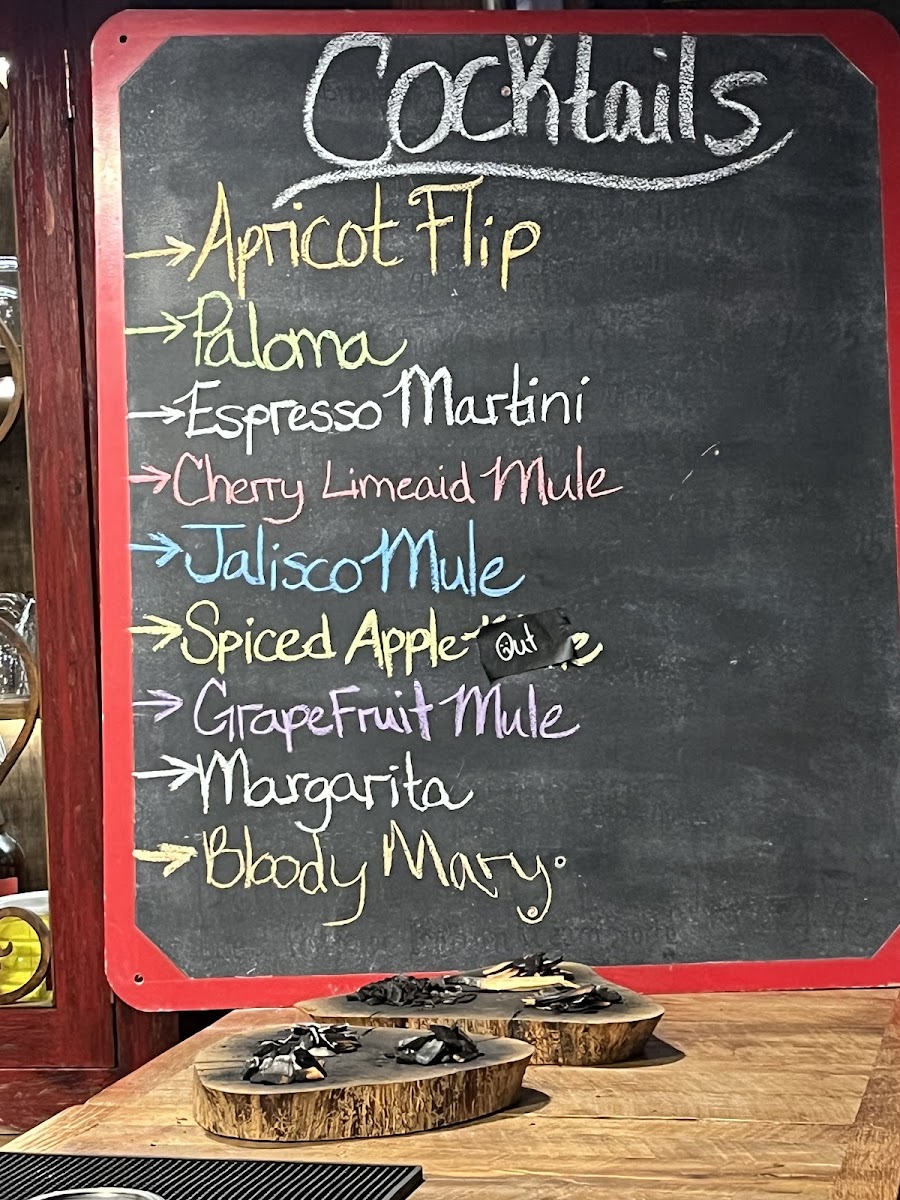 Cocktails
→Apricot Flip
→Paloma
→Espresso Martini
→Cherry Limeaid Mule
→Jalisco Mule
→Spiced Apple Out
→GrapeFruit Mule
→Margarita
→Bloody Mary